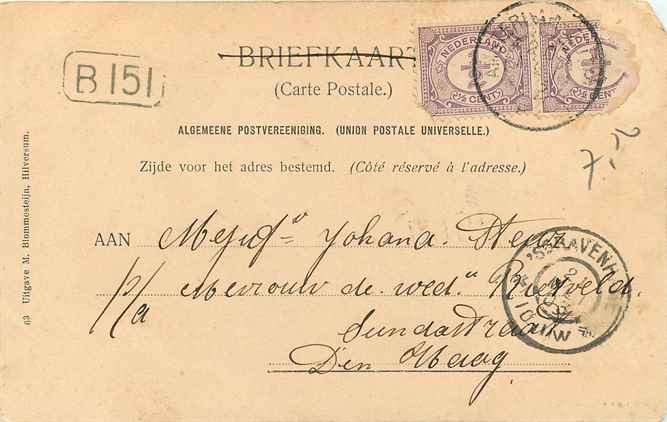 BRIEFKAART
(Carte Postale.)
B 151
NEDERLAND
2½ CENT
2½ CENT
ALGEMEENE POSTVEREENIGING. (UNION POSTALE UNIVERSELLE.)
Zijde voor het adres bestemd. (Côté réservé à l'adresse.)
7,
AAN Mejufr Johana
p/a Mevrouw de wed. Rietveld.
Sundastraat
Den Haag
'S GRAVENHAGE
63 Uitgave M. Blommesteijn, Hilversum.